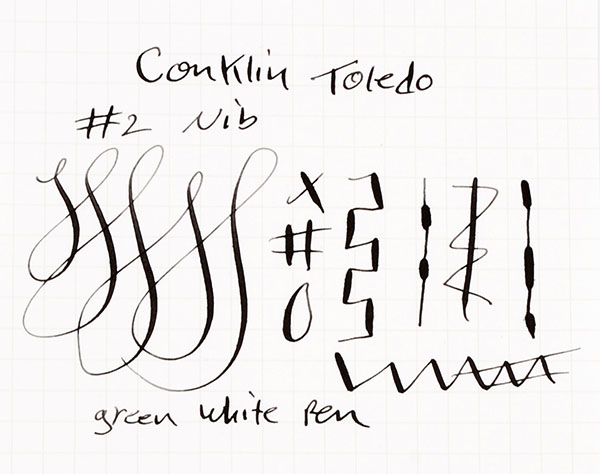 Conklin Toledo
#2 Nib
x
#
0
green white Pen